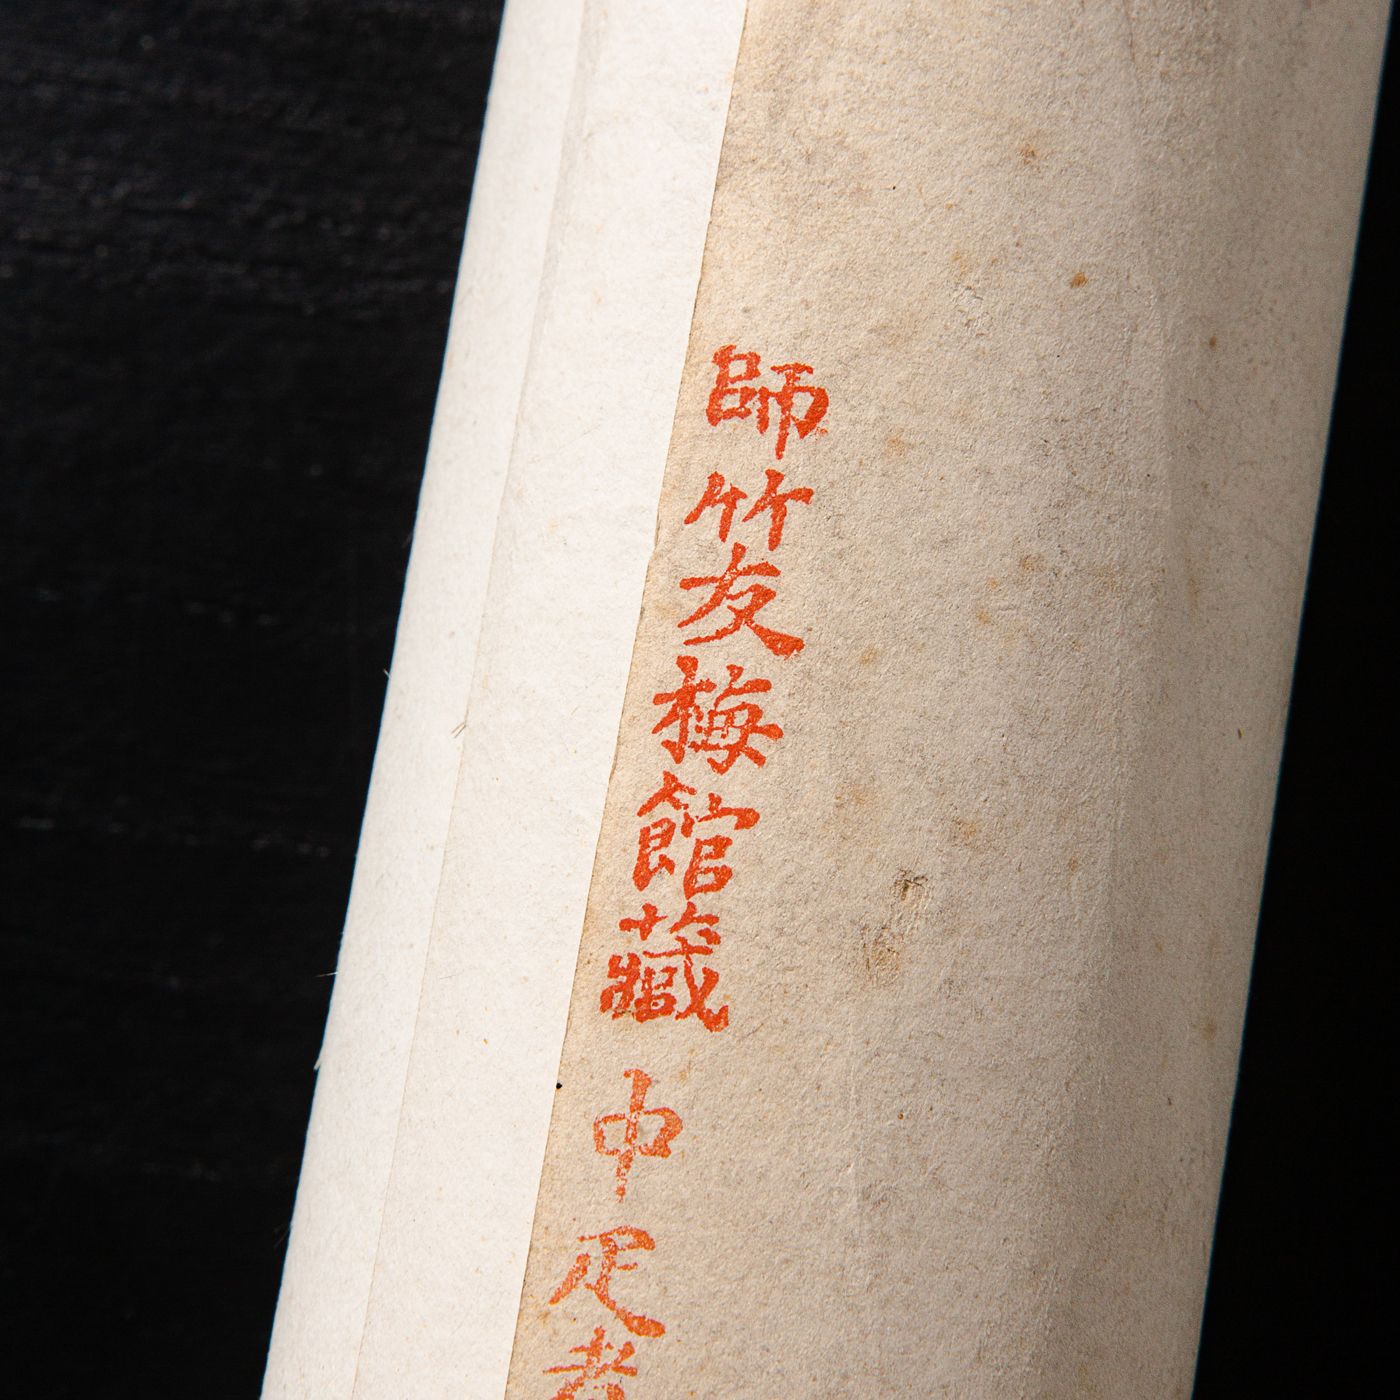 師竹友梅館藏 中疋